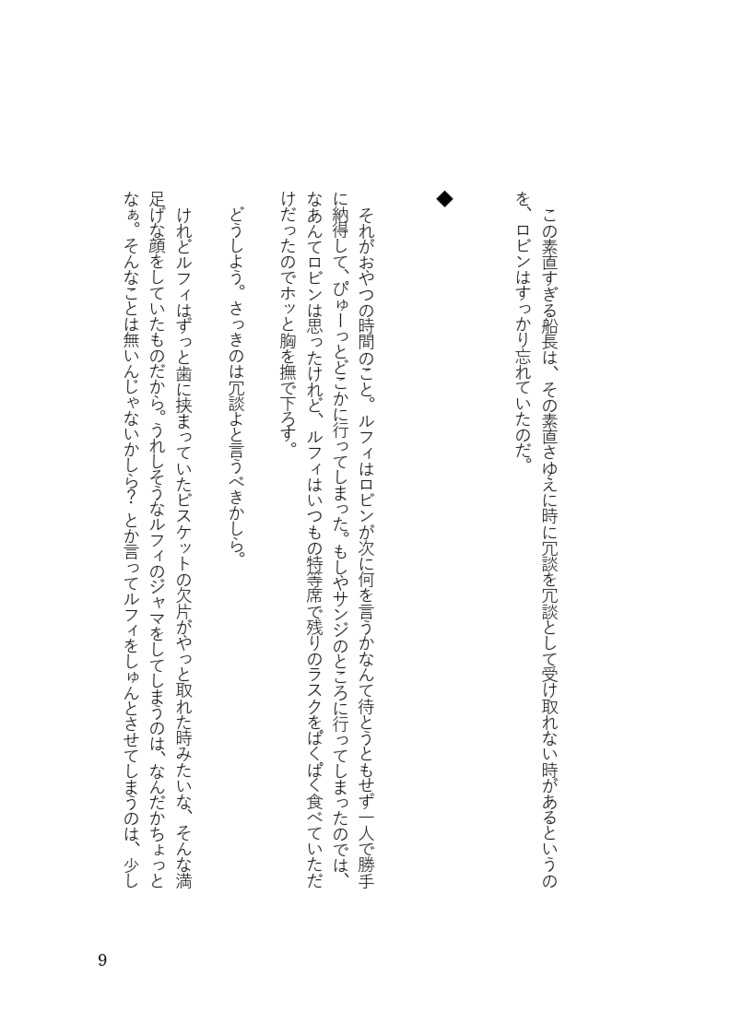 この素直すぎる船長は、その素直さゆえに時に冗談を冗談として受け取れない時があるというの
を、ロビンはすっかり忘れていたのだ。
◆
それがおやつの時間のこと。ルフィはロビンが次に何を言うかなんて待とうともせず一人で勝手
に納得して、ぴゅーっとどこかに行ってしまった。もしやサンジのところに行ってしまったのでは、
なあんてロビンは思ったけれど、ルフィはいつもの特等席で残りのラスクをぱくぱく食べていただ
けだったのでホッと胸を撫で下ろす。
どうしよう。さっきのは冗談よと言うべきかしら。
けれどルフィはずっと歯に挟まっていたビスケットの欠片がやっと取れた時みたいな、そんな満
足げな顔をしていたものだから。うれしそうなルフィのジャマをしてしまうのは、なんだかちょっと
なぁ。そんなことは無いんじゃないかしら？とか言ってルフィをしゅんとさせてしまうのは、少し
9